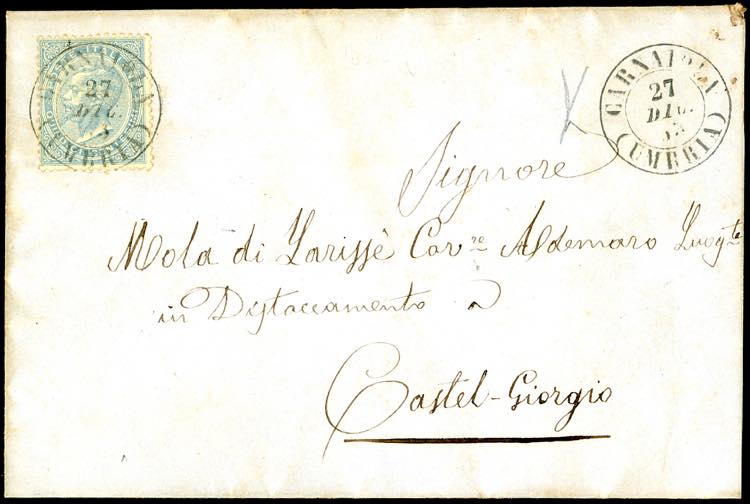 27
DIC.
(UMBRIA)
CARNAIOLA
27
DIC.
(UMBRIA)
Signore
Mola di Larissè Cav.re Aldemaro Luog.te
in Distaccamento a
Castel-Giorgio